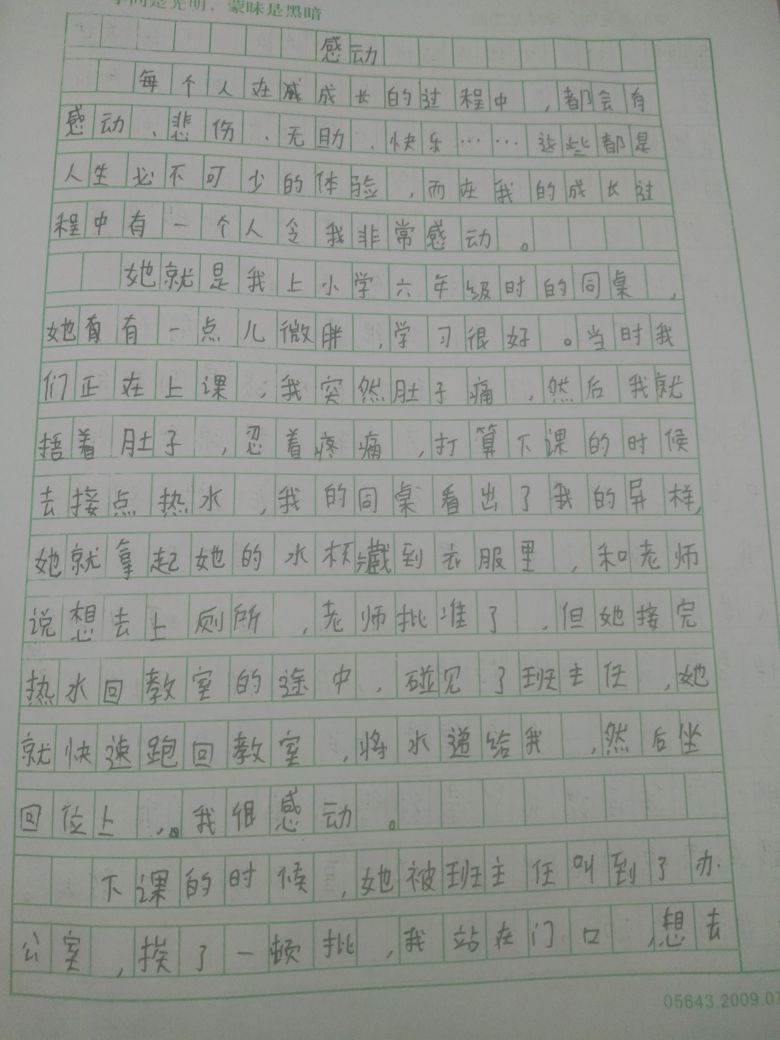 学问是光明，蒙昧是黑暗
感动
每个人在成长的过程中，都会有
感动、悲伤、无助、快乐……这些都是
人生必不可少的体验，而在我的成长过
程中有一个人令我非常感动。
她就是我上小学六年级时的同桌，
她有一点儿微胖，学习很好。当时我
们正在上课，我突然肚子痛，然后我就
捂着肚子，忍着疼痛，打算下课的时候
去接点热水，我的同桌看出了我的异样，
她就拿起她的水杯藏到衣服里，和老师
说想去上厕所，老师批准了，但她接完
热水回教室的途中，碰见了班主任，她
就快速跑回教室，将水递给我，然后坐
回位上，。我很感动。
下课的时候，她被班主任叫到了办
公室，挨了一顿批，我站在门口，想去
05643.2009.07